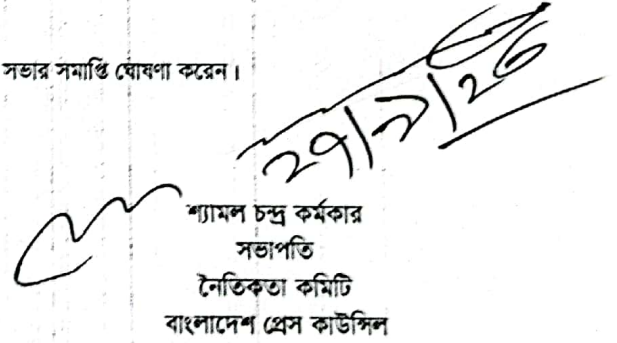 সভার সমাপ্তি ঘোষণা করেন।
২৭/৯/২৩
শ্যামল চন্দ্র কর্মকার
সভাপতি
নৈতিকতা কমিটি
বাংলাদেশ প্রেস কাউন্সিল